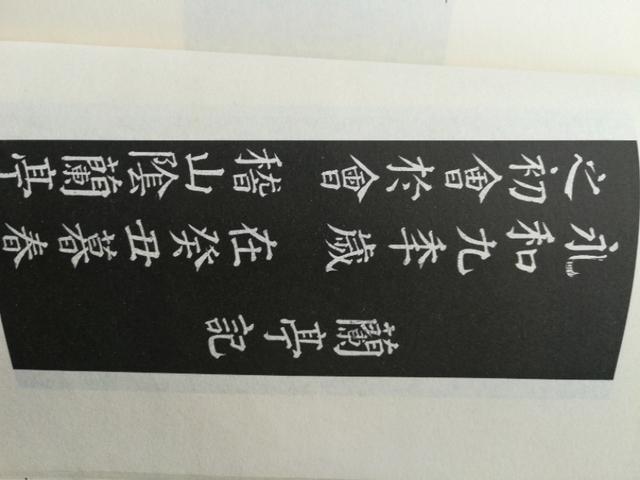 蘭亭記
永和九年歲在癸丑暮春
之初會於會稽山陰蘭亭